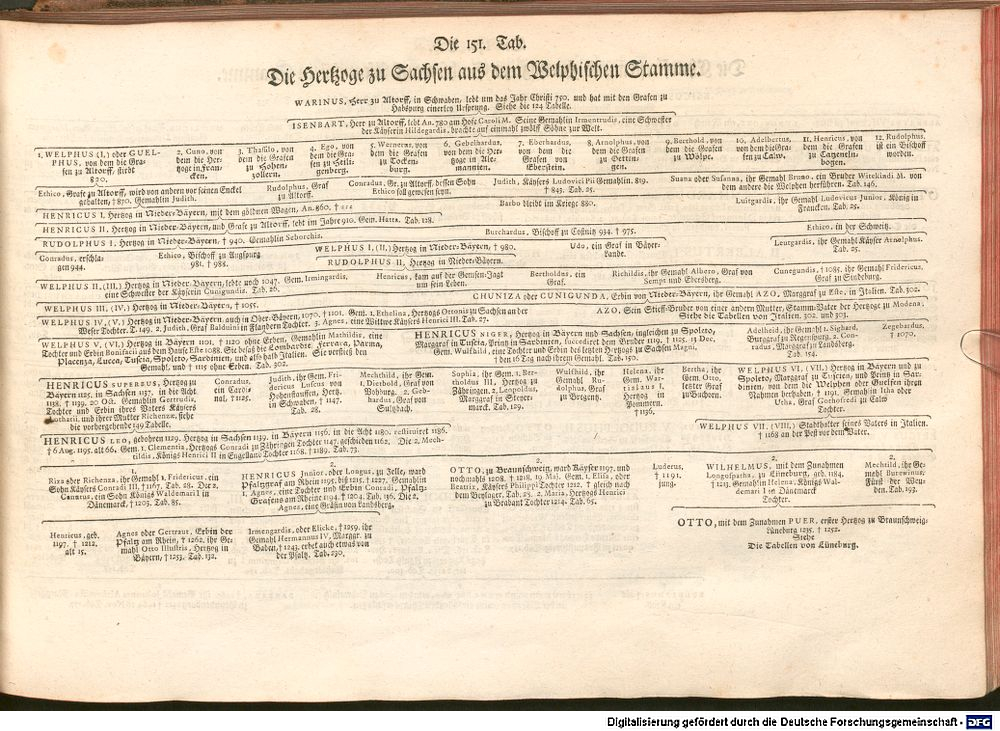 Die 151. Tab.
Die Hertzoge zu Sachsen aus dem Welphischen Stamme.
WARINUS, Herr zu Altorff, in Schwaben, lebt um das Jahr Christi 790. und hat mit den Grafen zu
Habspurg einerley Ursprung. Siehe die 124 Tabelle.
ISENBART, Herr zu Altorff, lebt An. 780 am Hofe Caroli M. Seine Gemahlin Irmentrudis, eine Schwester
der Käyserin Hildegardis, brachte auf einmahl zwölff Söhne zur Welt.
1. WELPHUS (I.) oder GUEL-
PHUS, von dem die Gra-
fen zu Altorff, stirbt
820.
2. Cuno, von
dem die Her-
tzoge in Fran-
cken.
3. Thassilo, von
dem die Grafen
zu Hohen-
zollern.
4. Ego, von
dem die Gra-
fen zu Heili-
genberg.
5. Wernerus, von
dem die Grafen
zu Tocken-
burg.
6. Gebelhardus,
von dem die Her-
tzoge in Ale-
mannien.
7. Eberhardus,
von dem die
Grafen von
Eberstein.
8. Arnolphus, von
dem die Grafen
zu Oettin-
gen.
9. Berthold, von
dem die Grafen
zu Wölpe.
10. Adelbertus,
von dem die Gra-
fen zu Calw.
11. Henricus, von
dem die Grafen
zu Catzeneln-
bogen.
12. Rudolphus,
ist ein Bischoff
worden.
Ethico, Grafe zu Altorff, wird von andern vor seinen Enckel
gehalten, † 870. Gemahlin Judith.
Rudolphus, Graf
zu Altorff.
Conradus, Gr. zu Altorff, dessen Sohn
Ethico soll gewesen seyn.
Judith, Käysers Ludovici Pii Gemahlin. 819.
† 843. Tab. 25.
Suana oder Susanna, ihr Gemahl Bruno, ein Bruder Witekindi M. von
dem andere die Welphen herführen. Tab. 146.
HENRICUS I. Hertzog in Nieder-Bäyern, mit dem göldnen Wagen, An. 860. †
Barbo bleibt im Kriege 880.
Luitgardis, ihr Gemahl Ludovicus Junior, König in
Francken. Tab. 25.
HENRICUS II. Hertzog in Nieder-Bäyern, und Grafe zu Altorff, lebt im Jahre 910. Gem. Hatta. Tab. 128.
Ethico, in der Schweitz.
RUDOLPHUS I. Hertzog in Nieder-Bäyern, † 940. Gemahlin Seborchia.
Burchardus, Bischoff zu Costnitz 934. † 975.
Leutgardis, ihr Gemahl Käyser Arnolphus.
Tab. 25.
Conradus, erschla-
gen 944.
Ethico, Bischoff zu Augspurg
981. † 988.
WELPHUS I. (II.) Hertzog in Nieder-Bäyern, † 980.
Udo, ein Graf in Bäyer-
Lande.
RUDOLPHUS II. Hertzog in Nieder-Bäyern.
WELPHUS II. (III.) Hertzog in Nieder-Bäyern, lebte noch 1047. Gem. Irmingardis,
eine Schwester der Käyserin Cunigundis. Tab. 26.
Henricus, kam auf der Gemsen-Jagt
um sein Leben.
Bertholdus, ein
Graf.
Richildis, ihr Gemahl Albero, Graf von
Sempt und Ebersberg.
Cunegundis, † 1085. ihr Gemahl Fridericus,
Graf zu Sindeburg.
WELPHUS III. (IV.) Hertzog in Nieder-Bäyern, † 1055.
CHUNIZA oder CUNIGUNDA, Erbin von Nieder-Bäyern, ihr Gemahl AZO, Marggraf zu Este, in Italien. Tab. 302.
WELPHUS IV. (V.) Hertzog in Nieder-Bäyern, auch in Ober-Bäyern, 1070. † 1101. Gem. 1. Ethelina, Hertzogs Ottonis zu Sachsen an der
Weser Tochter. T. 149. 2. Judith, Graf Balduini in Flandern Tochter. 3. Agnes, eine Wittwe Käysers Henrici III. Tab. 27.
AZO, Sein Stieff-Bruder von einer andern Mutter, Stamm-Vater der Hertzoge zu Modena.
Siehe die Tabellen von Italien. 302. und 303.
WELPHUS V. (VI.) Hertzog in Bäyern 1101. † 1120 ohne Erben. Gemahlin Mathildis, eine
Tochter und Erbin Bonifacii aus dem Hause Este 1088. Sie besaß die Lombardie, Ferrara, Parma,
Placenza, Lucca, Tuscia, Spoleto, Sardinien, und also halb Italien. Sie verstieß den
Gemahl, und † 1115 ohne Erben. Tab. 302.
HENRICUS NIGER, Hertzog in Bäyern und Sachsen, ingleichen zu Spoleto,
Marggraf in Tuscia, Printz in Sardinien, succediret dem Bruder 1119. † 1125. 13 Dec.
Gem. Wulfhild, eine Tochter und Erbin des letzten Hertzogs zu Sachsen Magni,
† den 16 Tag nach ihrem Gemahl. Tab. 150.
Adelheid, ihr Gemahl 1. Sighard,
Burggraf zu Regenspurg, 2. Con-
radus, Marggraf zu Landsberg.
Tab. 154.
Zegebardus,
† 1070.
HENRICUS SUPERBUS, Hertzog zu
Bäyern 1125. in Sachsen 1137. in die Acht
1138. † 1139. 20 Oct. Gemahlin Gertrudis,
Tochter und Erbin ihres Vaters Käysers
Lotharii, und ihrer Mutter Richenzæ, siehe
die vorhergehende 149 Tabelle.
Conradus,
ein Cardi-
nal, † 1125.
Judith, ihr Gem. Fri-
dericus Luscus von
Hohenstauffen, Hertz.
in Schwaben, † 1147.
Tab. 28.
Mechthild, ihr Gem.
1. Dietbold, Graf von
Vohburg, 2. Geb-
hardus, Graf von
Sultzbach.
Sophia, ihr Gem. 1. Ber-
tholdus III, Hertzog zu
Zähringen, 2. Leopoldus,
Marggraf in Steyer-
marck. Tab. 129.
Wulfhild, ihr
Gemahl Ru-
dolphus, Graf
zu Bregentz.
Helena, ihr
Gem. War-
tislaus I.
Hertzog in
Pommern.
† 1136.
Bertha, ihr
Gem. Otto,
letzter Graf
zu Buchorn.
WELPHUS VI. (VII.) Hertzog in Bäyern und zu
Spoleto, Marggraf zu Tuscien, und Printz in Sar-
dinien, von dem die Welphen oder Guelfen ihren
Nahmen herhaben, † 1191. Gemahlin Itha oder
Utha, Graf Gothofredi zu Calw
Tochter.
WELPHUS VII. (VIII.) Stadthalter seines Vaters in Italien.
† 1168 an der Pest vor dem Vater.
HENRICUS LEO, gebohren 1129. Hertzog in Sachsen 1139. in Bäyern 1156. in die Acht 1180. restituiret 1186.
† 6 Aug. 1195. alt 66. Gem. 1. Clementia, Hertzogs Conradi zu Zähringen Tochter 1147. geschieden 1162. Die 2. Mech-
tildis, Königs Henrici II in Engelland Tochter 1168. † 1189. Tab. 73.
1.
Rixa oder Richenza, ihr Gemahl 1. Fridericus, ein
Sohn Käysers Conradi III, † 1167. Tab. 28. Der 2.
Canutus, ein Sohn Königs Waldemari I in
Dänemarck, † 1203. Tab. 85.
2.
HENRICUS Junior, oder Longus, zu Zelle, ward
Pfaltzgraf am Rhein 1195. biß 1215. † 1227. Gemahlin
1. Agnes, eine Tochter und Erbin Conradi, Pfaltz-
Grafens am Rheine 1194. † 1204. Tab. 136. Die 2.
Agnes, eine Gräfin von Landsberg.
2.
OTTO, zu Braunschweig, ward Käyser 1197. und
nochmahls 1208. † 1218. 19 Maj. Gem. 1. Elisa, oder
Beatrix, Käysers Philippi Tochter 1212. † gleich nach
dem Beylager. Tab. 28. 2. Maria, Hertzogs Henrici
zu Brabant Tochter 1214. Tab. 95.
Luderus,
† 1191.
jung.
2.
WILHELMUS, mit dem Zunahmen
Longospatha, zu Lüneburg, geb. 1184.
† 1213. Gemahlin Helena, Königs Wal-
demari I in Dänemarck
Tochter.
2.
Mechtild, ihr Ge-
mahl Burewinus,
Fürst der Wen-
den. Tab. 193.
Henricus, geb.
1197. † 1212.
alt 15.
Agnes oder Gertraut, Erbin der
Pfaltz am Rhein, † 1262. ihr Ge-
mahl Otto Illustris, Hertzog in
Bäyern, † 1253. Tab. 132.
Irmengardis, oder Elicke, † 1259. ihr
Gemahl Hermannus IV, Marggr. zu
Baden, † 1243. erbet auch etwas von
der Pfaltz. Tab. 230.
OTTO, mit dem Zunahmen PUER, erster Hertzog zu Braunschweig-
Lüneburg 1235. † 1252.
Siehe
Die Tabellen von Lüneburg.
Digitalisierung gefördert durch die Deutsche Forschungsgemeinschaft - DFG